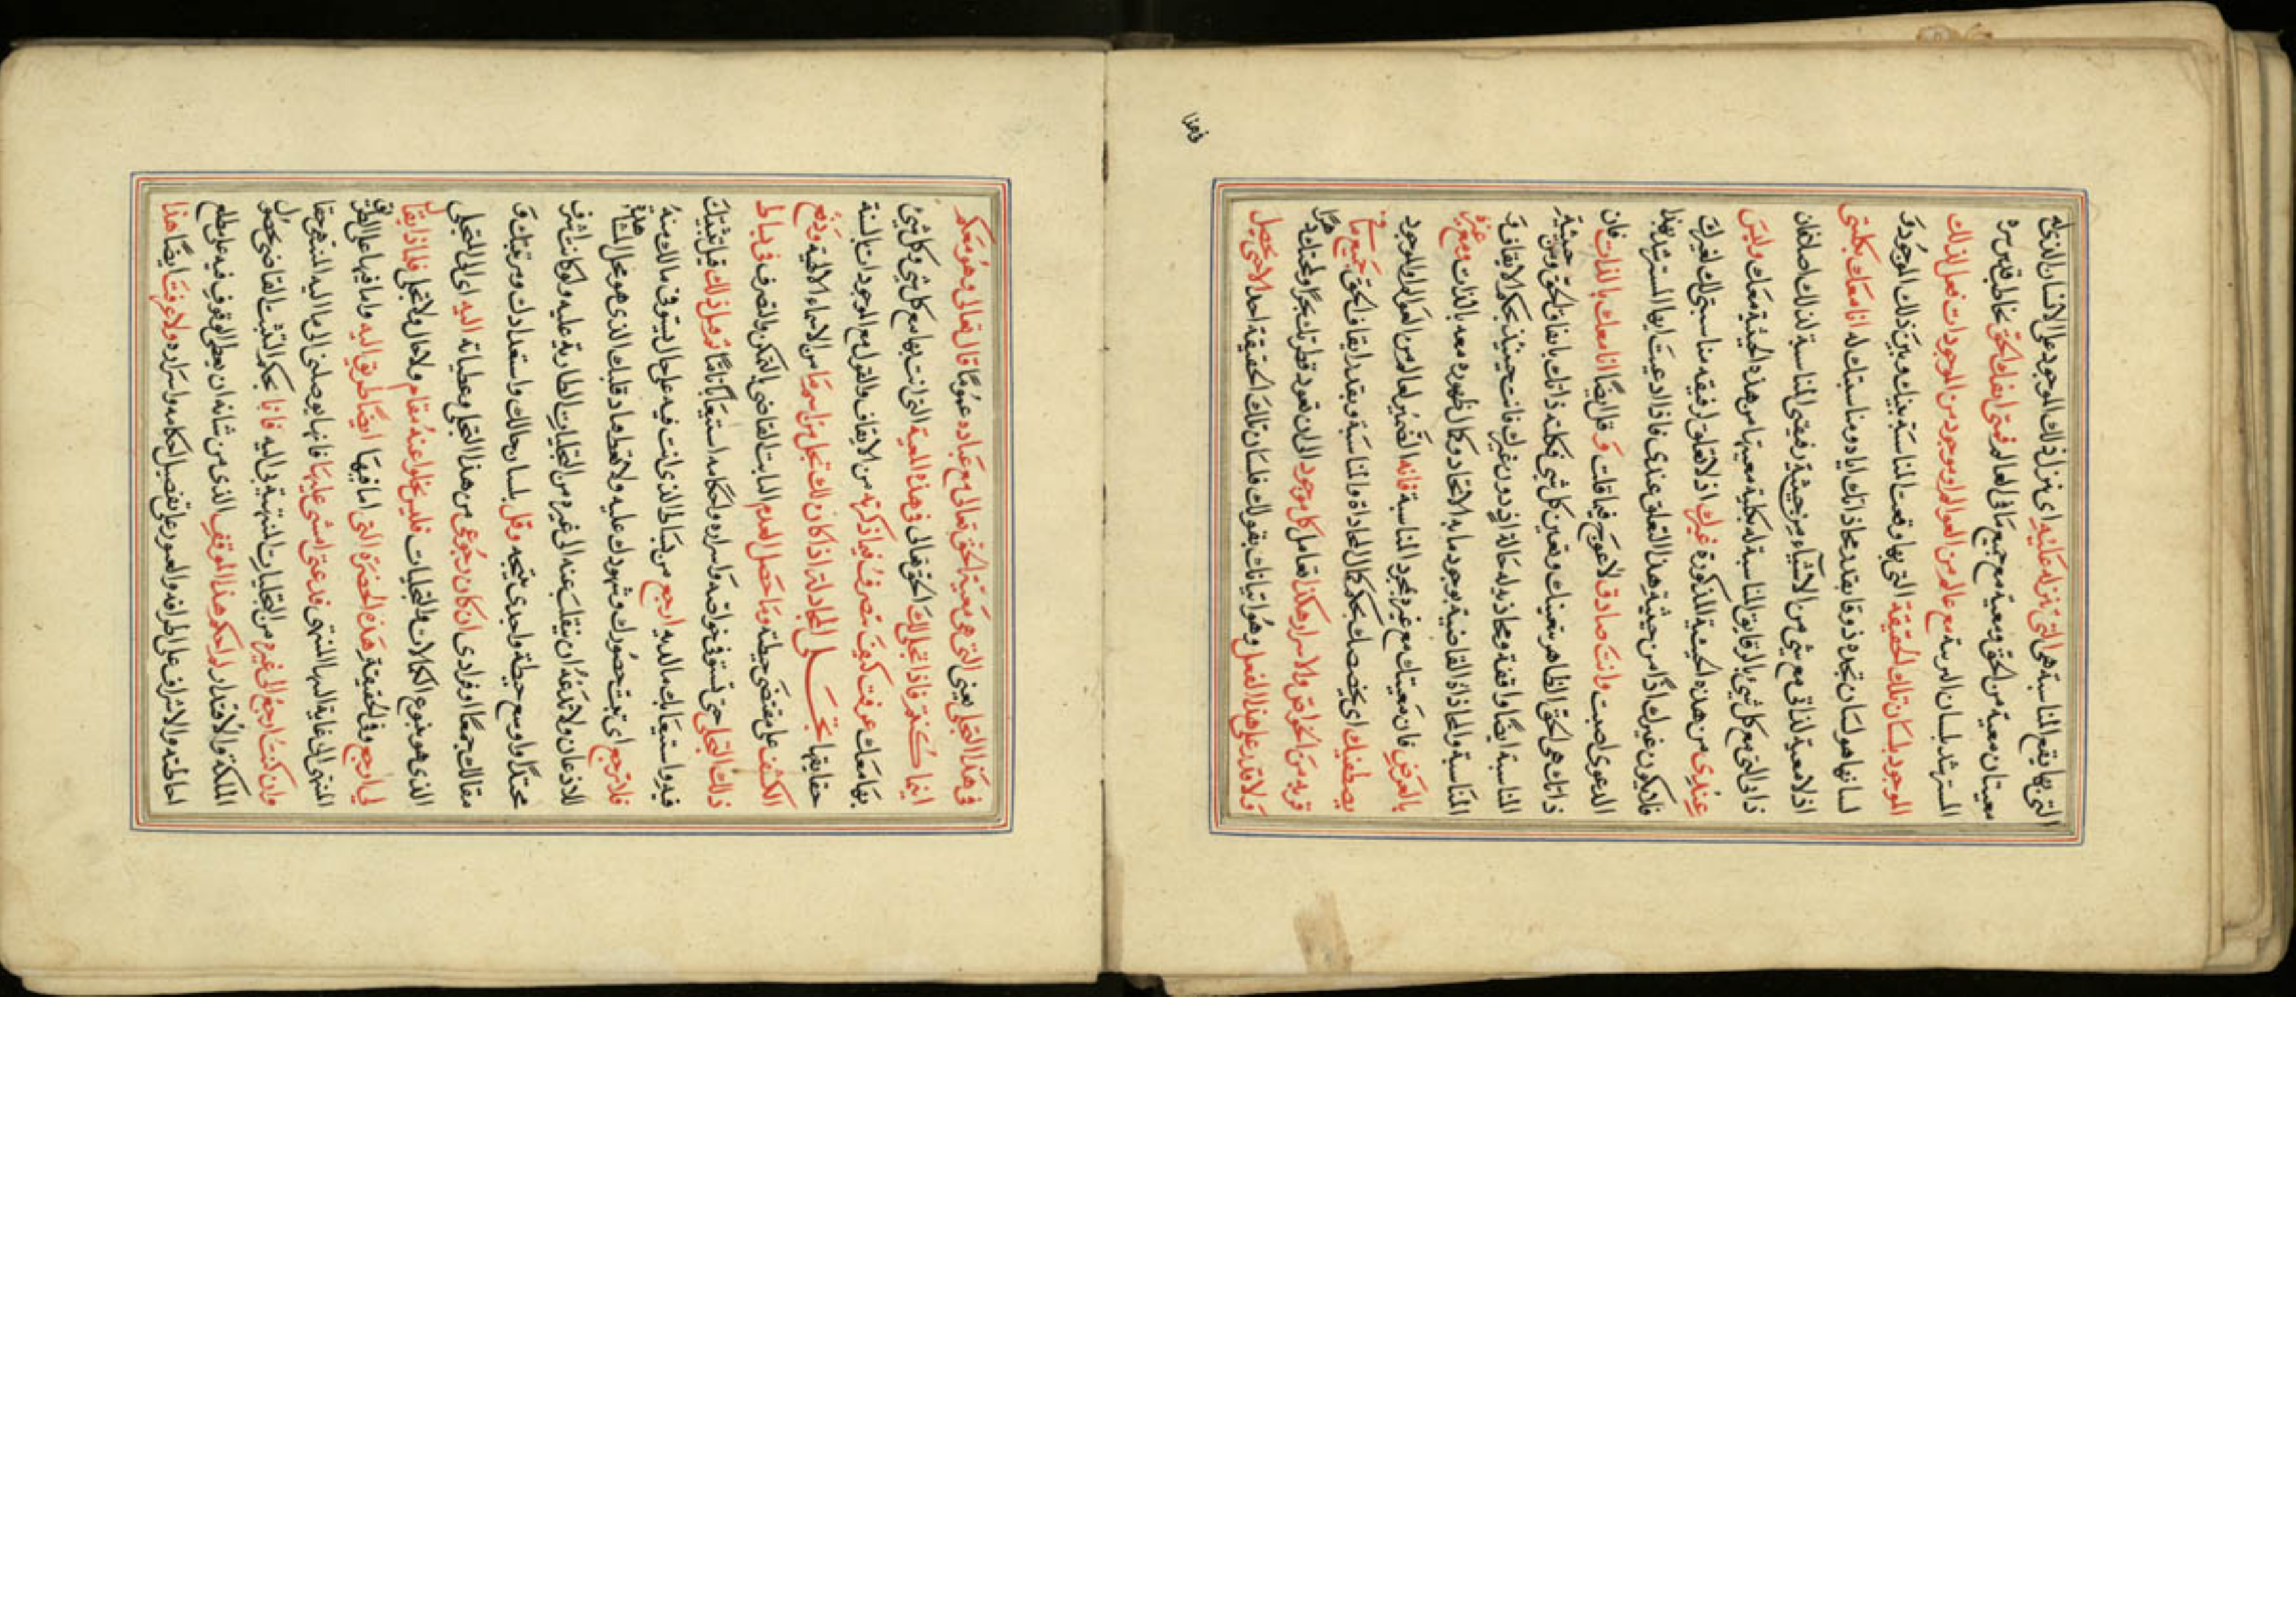 التي بها يقع المناسبة هي التي تنزله عليه اى تنزل ذلك الموجود على الانسان الذي له
معيتان معية من الحق ومعية مع جميع ما في العالم فمتى ايقنك الحق تخاطب قدس سره
المسترشد بلسان المرتبة مع عالم من العوالم او موجود من الموجودات فعل لذلك
الموجود بلسان تلك الحقيقة التي بها وقعت المناسبة بينك وبين ذلك الموجود و
لسانها هو لسان تجده ذوقا بقدر محاذاتك اياه ومناسبتك له انا معك بكليتي
اذ لا معية لذاتي مع شي من الاشياء من حيثية رفيقتي المناسبة لذلك اصلا فان
ذاتي التي مع كل شيء بالرقايق المناسبة له بكلية معيتها من هذه الحيثية معك وليس
عندي من هذه الحيثية المذكورة غيرك اذ لا تعلق لرفيقه مناسبتي لك لغيرك
فلا يكون غيرك اذا من حيثية هذا التعلق عندي فاذا ادعيت ايها المسترشد بهذا
الدعوى اصبت وانت صادق لا عوج فيما قلت وقل ايضا انا معك بالذات فان
ذاتك هي الحق الظاهر بتعينك وتعين كل شي فكله ذاتك بايقاف الحق ومن حيثية
المناسبة ايضا واقفة ومحاذية له حالة اذ دون غيرك فانت حينئذ بحكم الايقاف و
المناسبة والمحاذاة القاضية بوجود ما به الاتحاد وكمال ظهوره معه بالذات ومع غيره
بالعرض فان معيتك مع غيره بمجرد المناسبة فانه الضمير لعالم من العوالم او الموجود
يصطفيك اى يخصصك بحكم كمال المحاذاة والمناسبة وبقدر ايقاف الحق جميع ما في
قوته من الخواص والاسرار هكذا تعامل كل موجود الى ان تعود قطرتك بحرا ولمحتك دهرا
ولا قدر على هذا الفعل وهو اتيانك بقولك فلسان تلك الحقيقة احد الا حتى يحصل
فهذا
في هذا التجلي يعني التي هي معية الحق تعالى مع عباده عموما قال تعالى وهو معكم
اينما كنتم فاذا تجلى لك الحق تعالى في هذه المعية التي انت بها مع كل شي وكل شيء
بها معك عرفت كيف تتصرف فيما ذكرته من الايقاف والقول مع الموجودات بالسنة
حقايقها تجلى المجادلة اذا كان لك تجل من اسم ما من الاسماء الالهية ووقع
الكشف على مقتضى حيطته وما حصل العدم الثابت القاضي بالتمكن والتصرف في بساط
ذلك التجلي حتى تستوفي خواصه واسراره واحكامه استيعابا تاما وقيل ذلك قبل تثبتك
فيه واستيعابك ما لديه ارجع من بساط الذي انت فيه على حال يستوفي مالك منه
فلا ترجع اى تبعث حضورك وشهودك عليه ولا تعط ما دقلبك الذي هو محل المشاهدة
للاذعان ولا تدعه ان ينقلب عنه الى غيره من التجليات الطارية عليه ولو كانت اشرف
محتدا واوسع حيطة واجدى نتيجه وقل بلسان حالك واستعدادك ومرتبتك و
مقالك جمعا او فرادى ان كان رجوعي من هذا التجلي وعطياته اليه اى الى المتجلي
الذي هو ينبوع الكمالات والتجليات فليس يخلوا عنه مقام ولا حال ولا تجل فلماذا يقال
لي ارجع وفي الحقيقة هذه الحضرة التي اما فيها ايضا طريق اليه واما فيها على الطريق
المنتهى الى غاية اليها المنتهى فدعني امشي عليها فانها يوصلني الى ما اليه المنتهى حقا
وان كنت ارجع الى غيره من التجليات المنتهية بي اليه فانا بحكم التثبت القاضي بحصول
الملكة والاقتدار لم احكم هذا الموقف الذي من شانه ان يعطى الوقوف فيه على مطلع
احاطته والاشراف على اطرافه والعبور على تفصيل احكامه واسراره ولا عرفت ايضا هذا